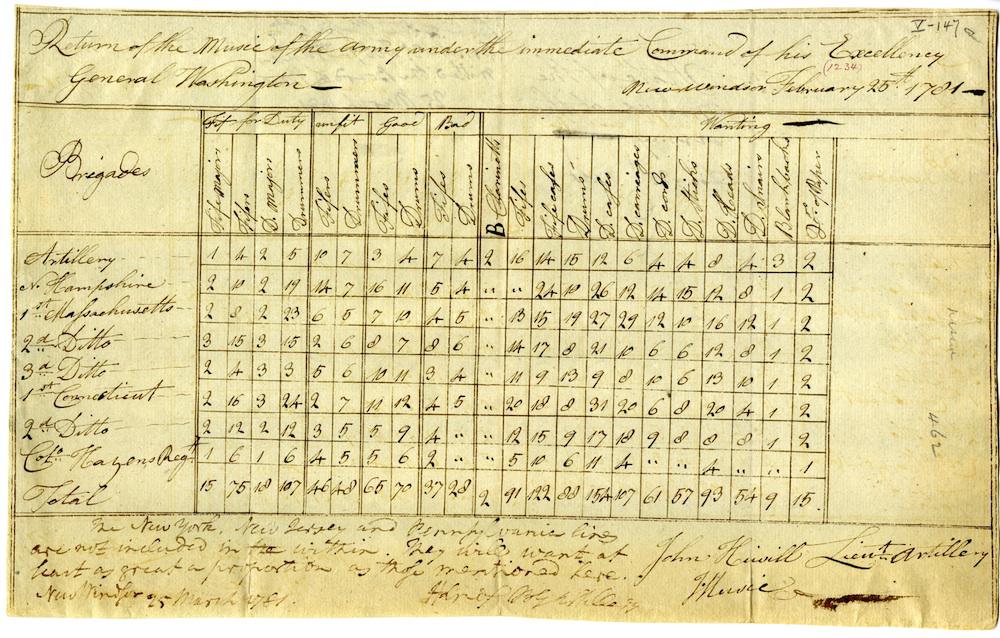 V-147
Return of the Music of the Army under the immediate Command of his Excellency
(1234)
General Washington —
New Windsor February 25th 1781 —
Brigades
Fit for Duty unfit Good Bad Wanting
Fife Majors Fifers D. Major Drummers Fifers Drummers Fifes Drums Fifes Drums B Clarinetts Fifes Fife cases Drums D. cases D. carriages D. cords D. Sticks D. Heads D. Snairs Blank books of Paper
Artillery 1 4 2 5 10 7 3 4 7 4 2 16 14 15 12 6 4 4 8 4 3 2
N. Hampshire 2 10 2 19 14 7 16 11 5 4 " " 24 10 26 12 14 15 12 8 1 2
1st Massachusetts 2 8 2 23 6 5 7 10 4 5 " 13 15 19 27 29 12 10 16 12 1 2
2d Ditto 3 15 3 15 2 6 8 7 8 6 " 14 17 8 21 10 6 6 12 8 1 2
3d Ditto 2 4 3 3 5 6 10 11 3 4 " 11 9 13 9 8 10 6 13 10 1 2
1st Connecticut 2 16 3 24 2 7 11 12 4 5 " 20 18 8 31 20 6 8 20 4 1 2
2d Ditto 2 12 2 12 3 5 5 9 4 " " 12 15 9 17 18 9 8 8 8 1 2
Colo Hazens Regt 1 6 1 6 4 5 5 6 2 " " 5 10 6 11 4 " " 4 " " 1
Total 15 75 18 107 46 48 65 70 37 28 2 91 122 88 154 107 61 57 93 54 9 15
The New York, New Jersey and Pennsylvania lines
are not included in the within. They will want at
least as great a proportion as those mentioned here.
New Windsor 25 March 1781.
John Hiwill Lieut. Artillery
Music
462